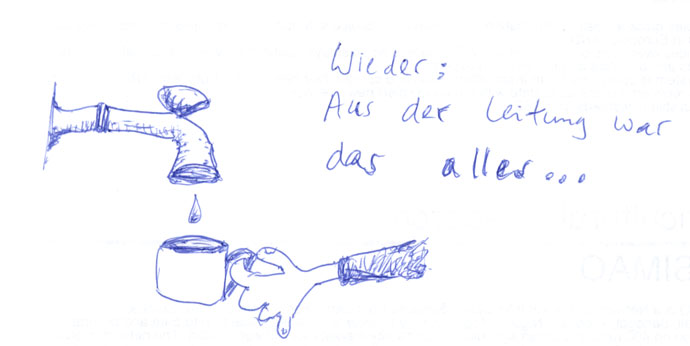 Wieder:
Aus der Leitung war
das alles...